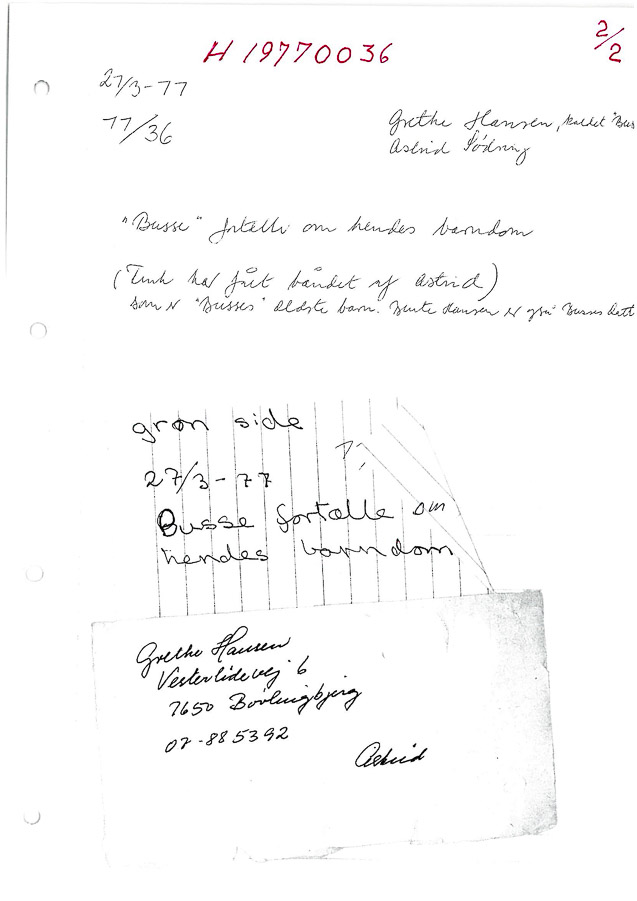 H 19770036
2/2
27/3-77
77/36
Grethe Hansen, kaldet "Bus
Astrid Södring
"Busse" fortælle om hendes barndom
(Tink har fået båndet af Astrid)
som er "Busses" ældste barn. Bente Hansen er også Busses datt
grøn side
27/3-77
Busse fortælle om
hendes barndom
Grethe Hansen
Vesterlidevej 6
7650 Bøvlingbjerg
07-885392
Astrid